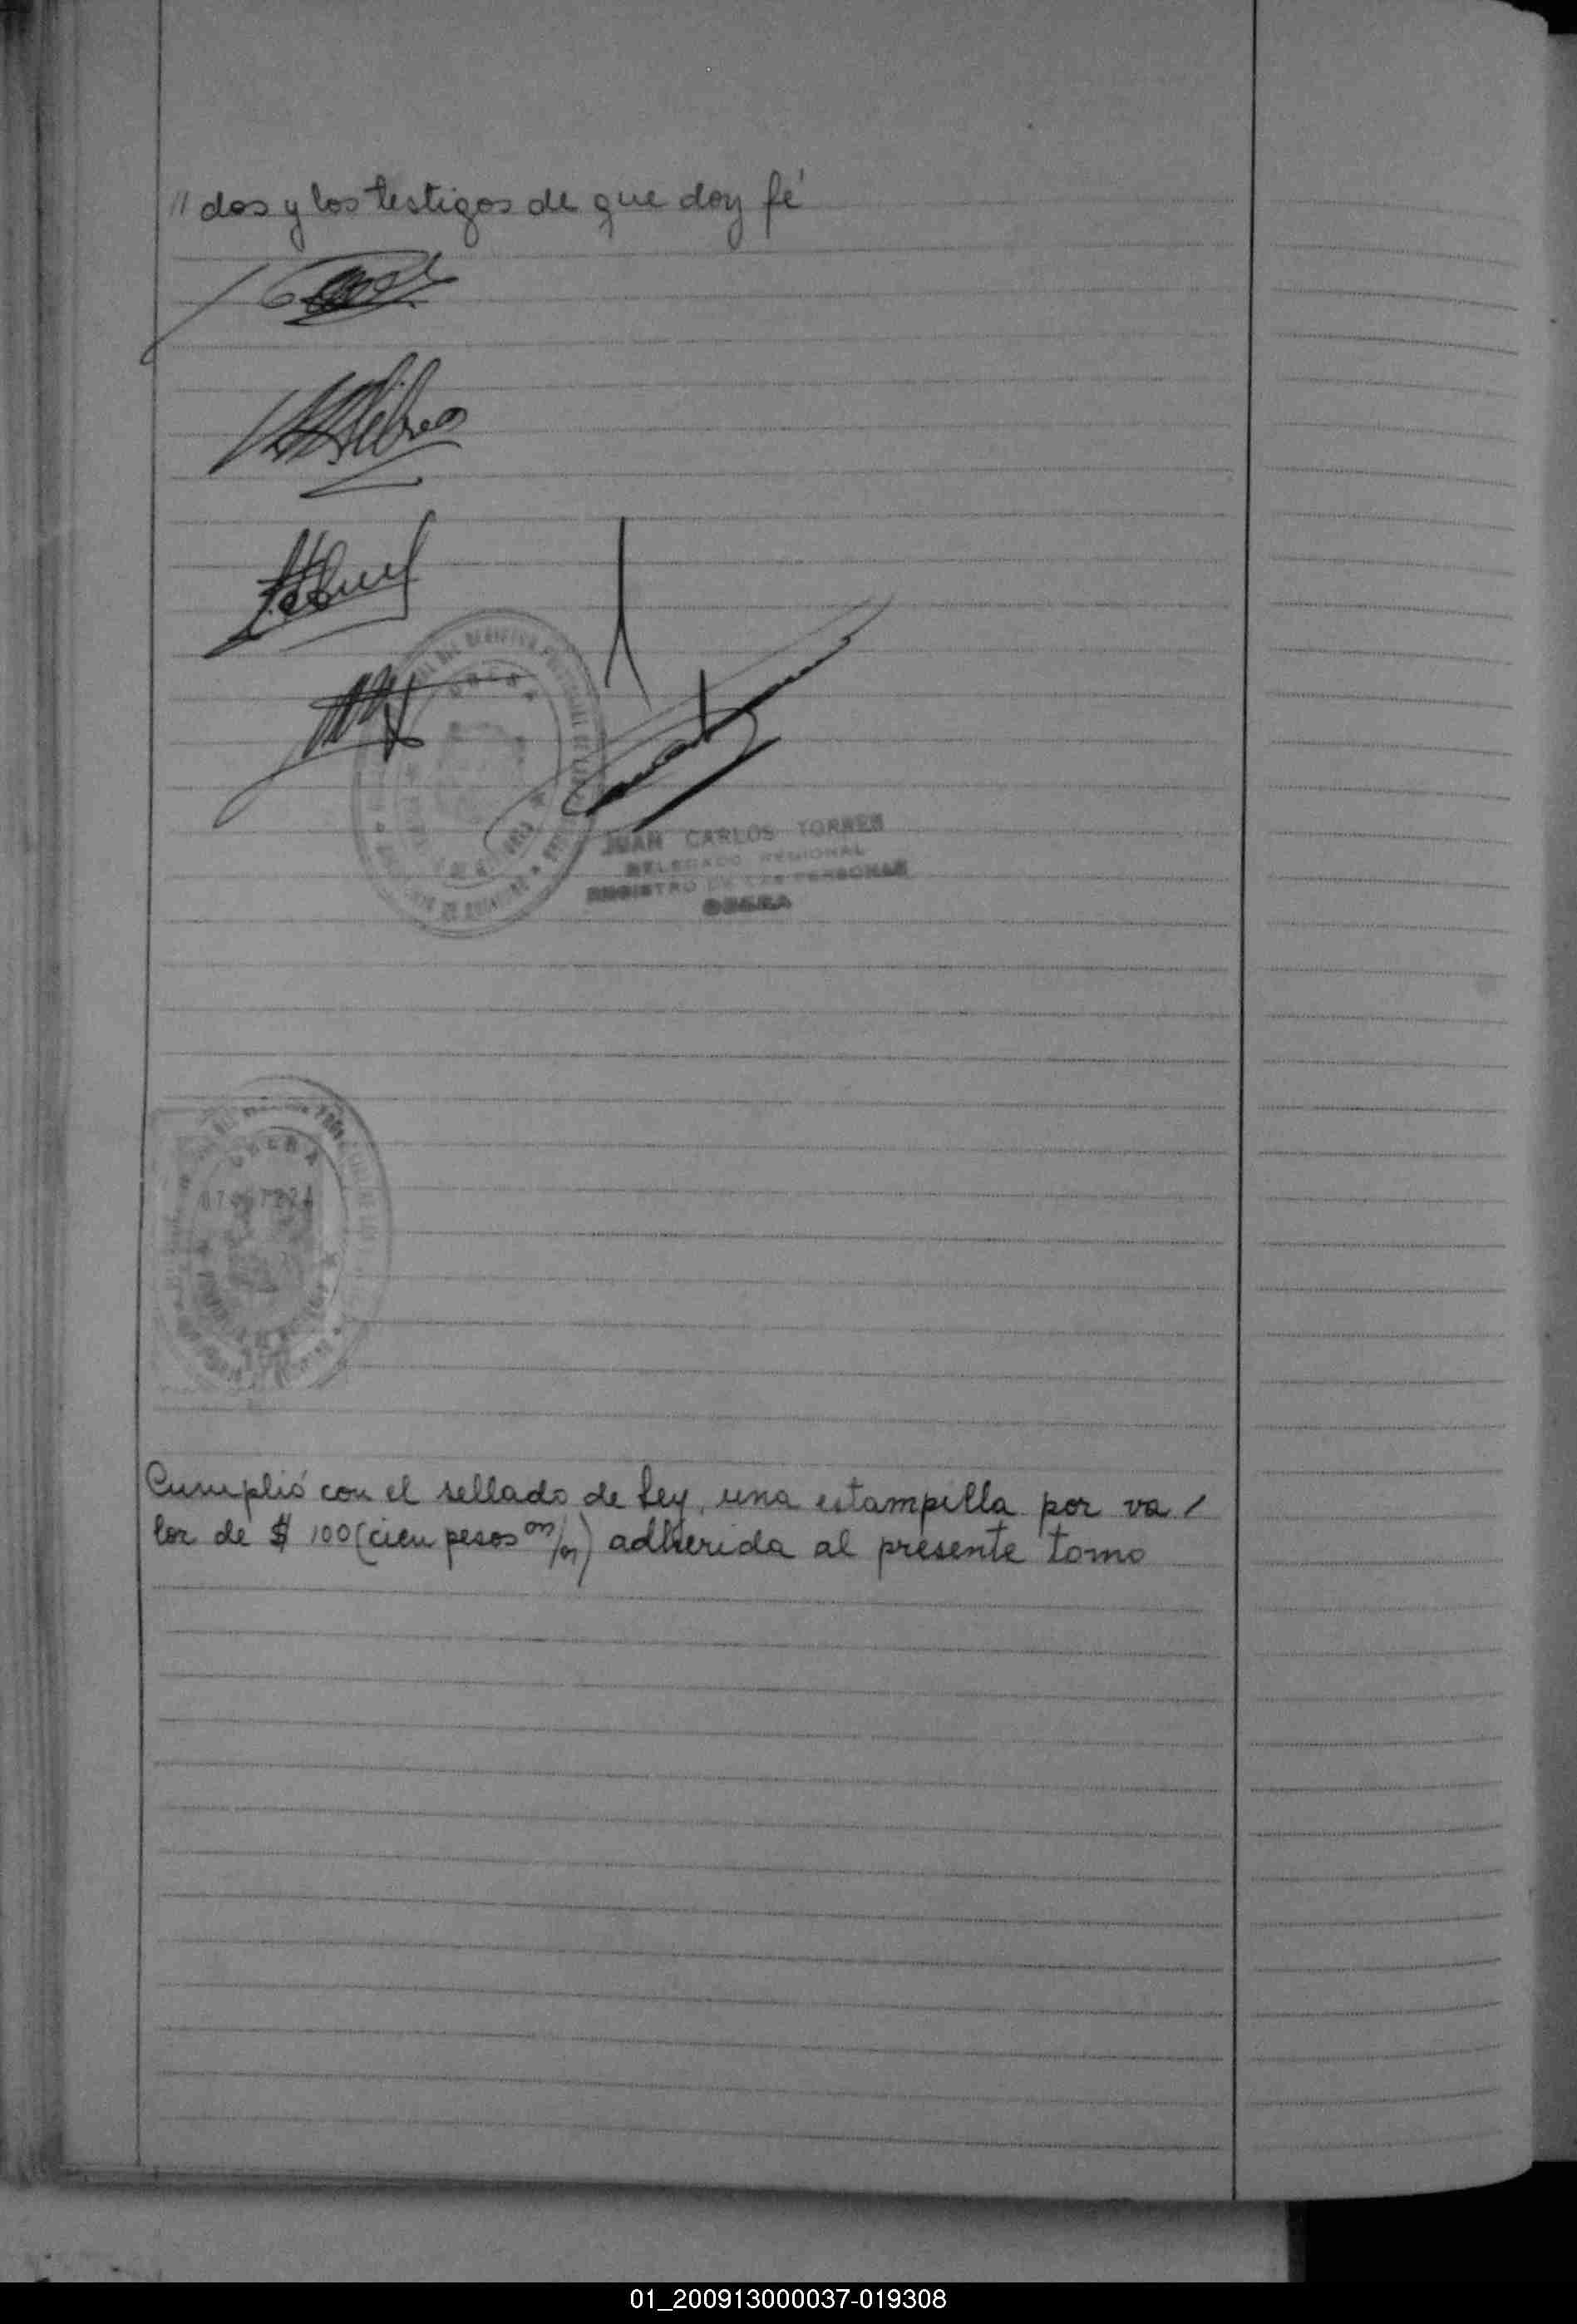 // dos y los testigos de que doy fé
OBERA
JUAN CARLOS TORRES
DELEGADO REGIONAL
REGISTRO DE LAS PERSONAS
OBERA
OBERA
Cumplió con el sellado de Ley, una estampilla por va /
lor de $ 100 (cien pesos m/n) adherida al presente tomo
01_200913000037-019308